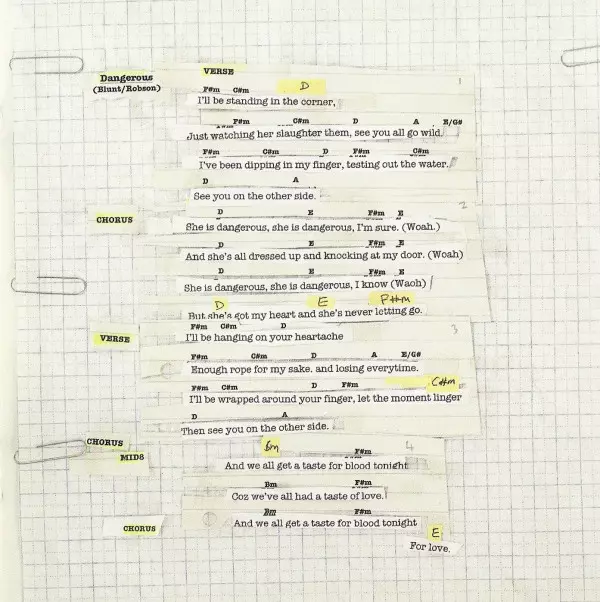 Dangerous
(Blunt/Robson)
VERSE
1
F#m C#m D
I'll be standing in the corner,
F#m C#m D A E/G#
Just watching her slaughter them, see you all go wild.
F#m C#m D F#m C#m
I've been dipping in my finger, testing out the water.
D A
See you on the other side.
2
CHORUS
D E F#m E
She is dangerous, she is dangerous, I'm sure. (Woah.)
D E F#m E
And she's all dressed up and knocking at my door. (Woah)
D E F#m E
She is dangerous, she is dangerous, I know (Waoh)
D E F#m
But she's got my heart and she's never letting go.
3
VERSE
F#m C#m D
I'll be hanging on your heartache
F#m C#m D A E/G#
Enough rope for my sake. and losing everytime.
F#m C#m D F#m C#m
I'll be wrapped around your finger, let the moment linger
D A
Then see you on the other side.
CHORUS
4
MID8
Bm F#m
And we all get a taste for blood tonight
Bm F#m
Coz we've all had a taste of love.
Bm F#m
And we all get a taste for blood tonight
CHORUS
E
For love.